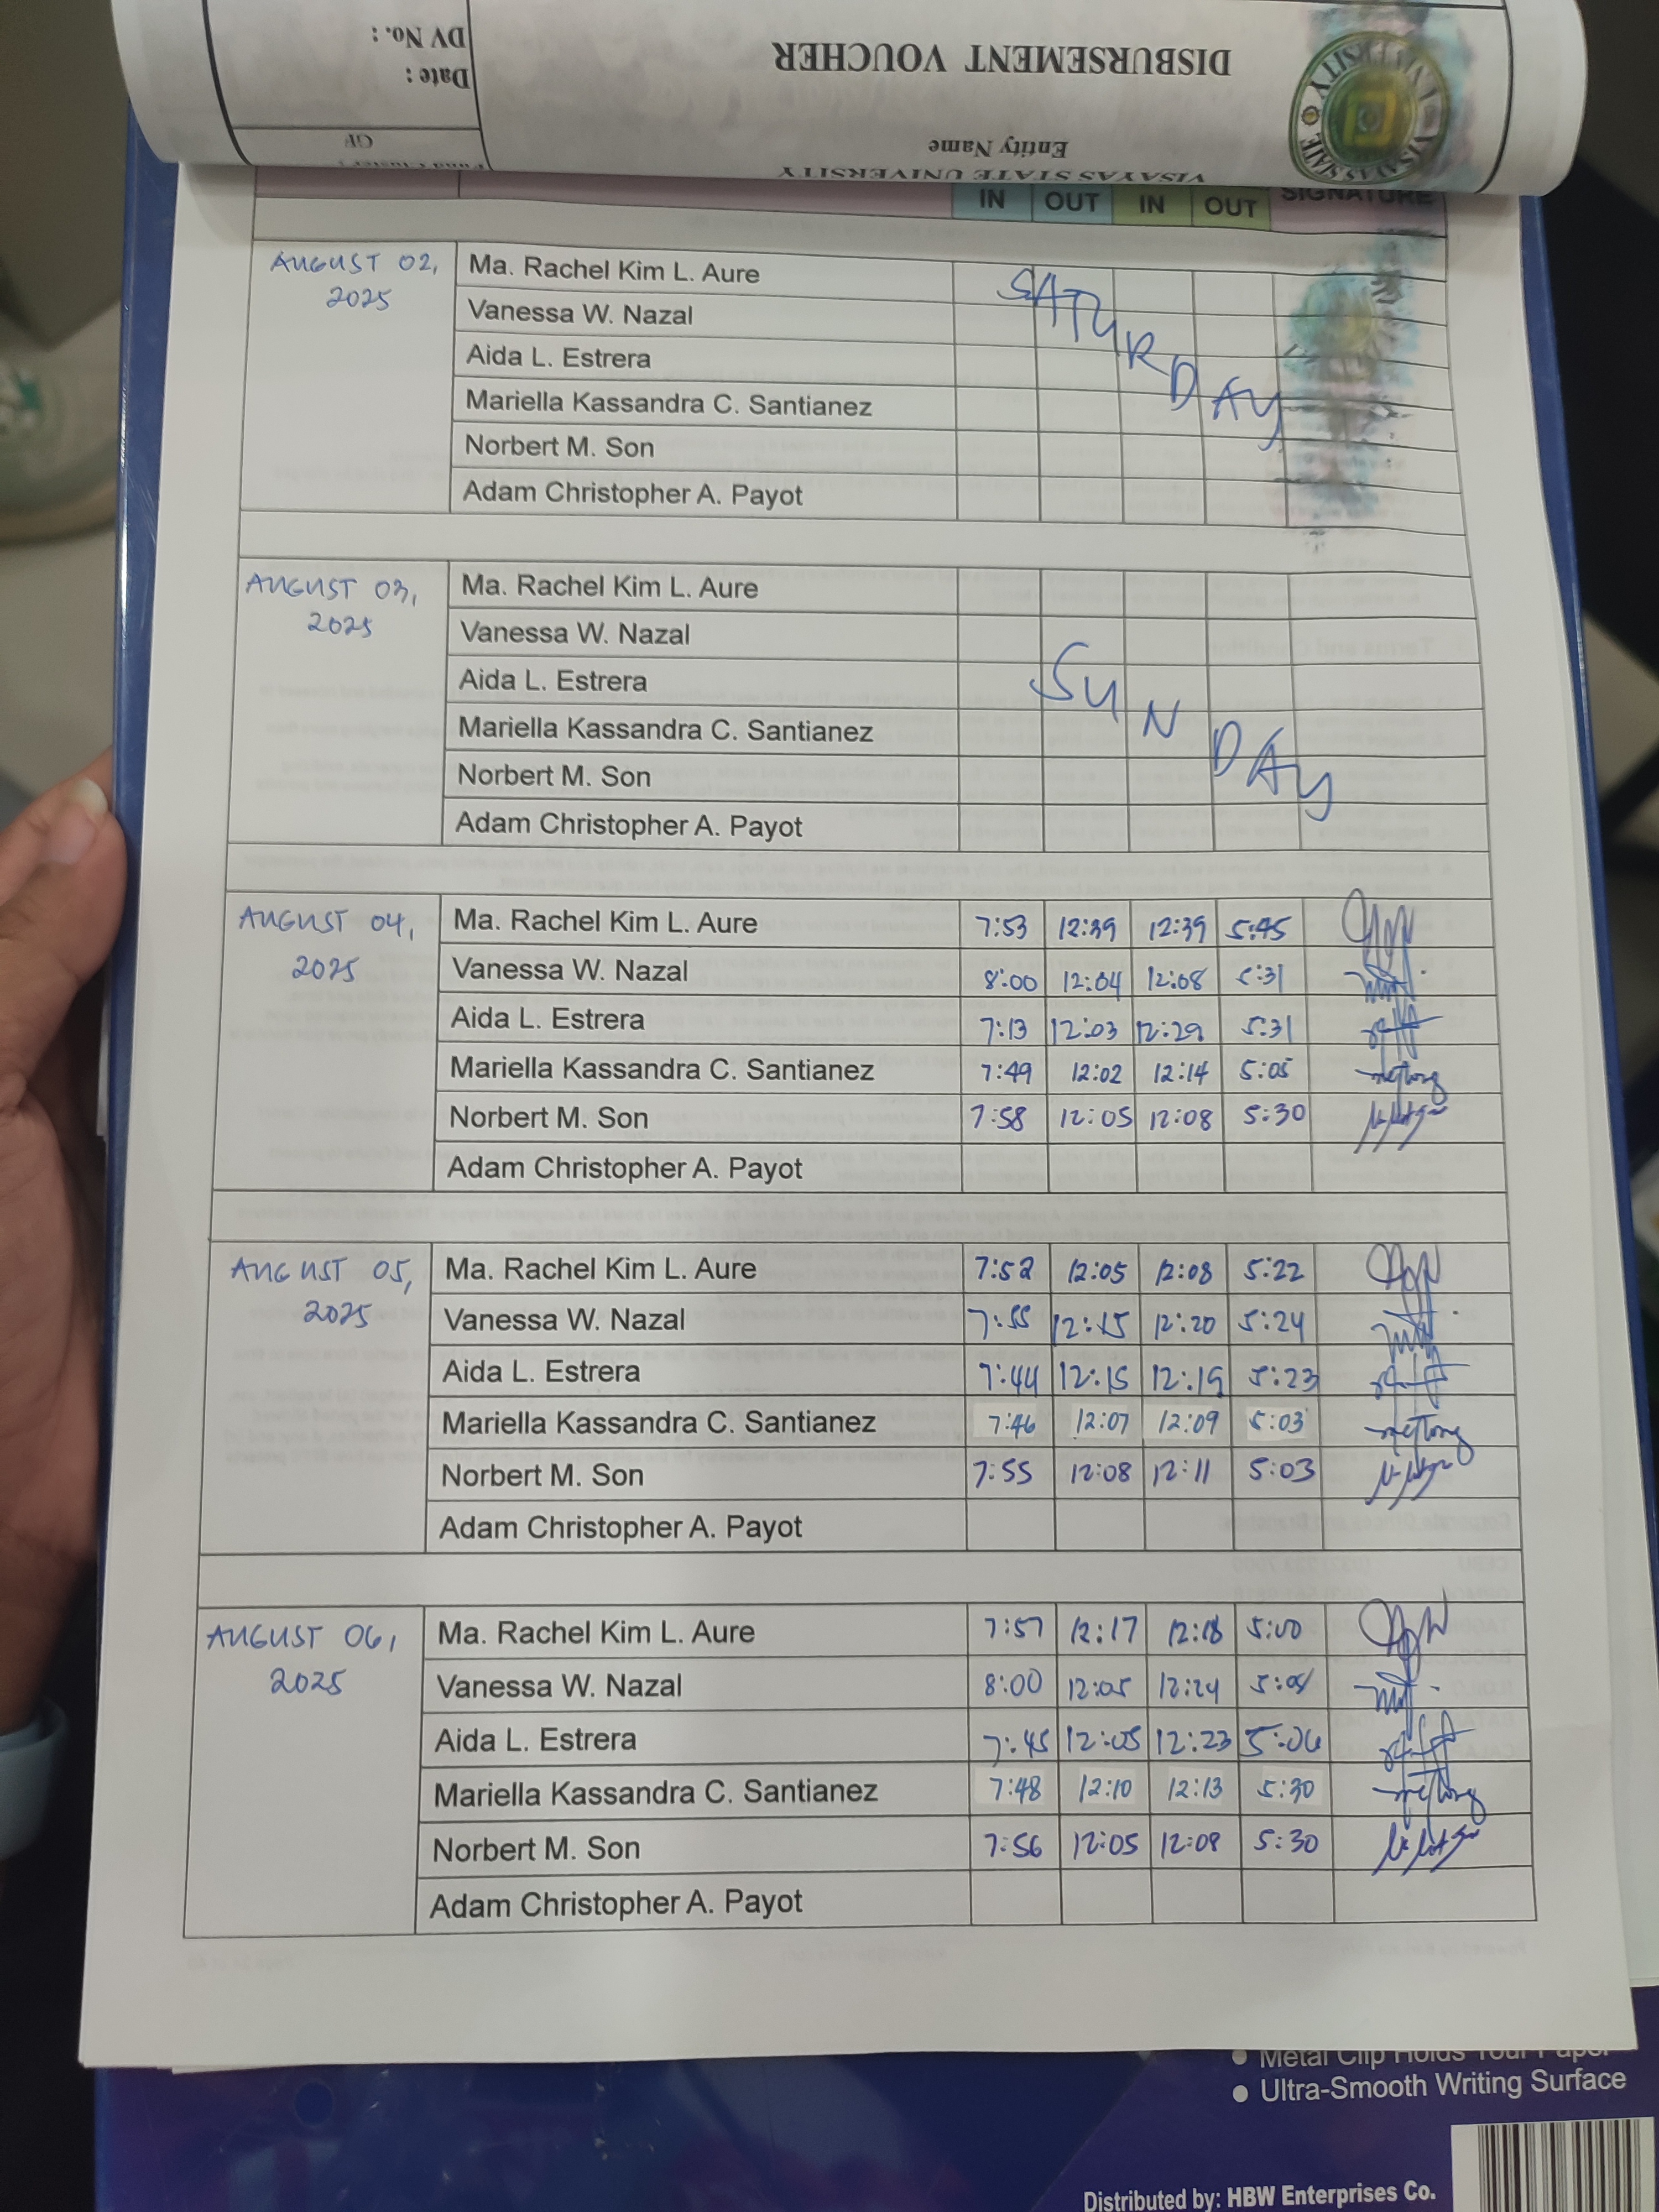 DV No. :
Date :
DISBURSEMENT VOUCHER
GF
Entity Name
VISAYAS STATE UNIVERSITY
IN OUT IN OUT SIGNATURE
AUGUST 02, 2025
Ma. Rachel Kim L. Aure
Vanessa W. Nazal
Aida L. Estrera
Mariella Kassandra C. Santianez
Norbert M. Son
Adam Christopher A. Payot
SATURDAY
AUGUST 03, 2025
Ma. Rachel Kim L. Aure
Vanessa W. Nazal
Aida L. Estrera
Mariella Kassandra C. Santianez
Norbert M. Son
Adam Christopher A. Payot
SUNDAY
AUGUST 04, 2025
Ma. Rachel Kim L. Aure 7:53 12:39 12:39 5:45
Vanessa W. Nazal 8:00 12:04 12:08 5:31
Aida L. Estrera 7:13 12:03 12:29 5:31
Mariella Kassandra C. Santianez 7:49 12:02 12:14 5:05
Norbert M. Son 7:58 12:05 12:08 5:30
Adam Christopher A. Payot
AUGUST 05, 2025
Ma. Rachel Kim L. Aure 7:52 12:05 12:08 5:22
Vanessa W. Nazal 7:55 12:15 12:20 5:24
Aida L. Estrera 7:44 12:15 12:19 5:23
Mariella Kassandra C. Santianez 7:46 12:07 12:09 5:03
Norbert M. Son 7:55 12:08 12:11 5:03
Adam Christopher A. Payot
AUGUST 06, 2025
Ma. Rachel Kim L. Aure 7:57 12:17 12:18 5:00
Vanessa W. Nazal 8:00 12:05 12:24
Aida L. Estrera 7:45 12:05 12:23 5:06
Mariella Kassandra C. Santianez 7:48 12:10 12:13 5:30
Norbert M. Son 7:56 12:05 12:08 5:30
Adam Christopher A. Payot
Metal Clip Holds Your Paper
Ultra-Smooth Writing Surface
Distributed by: HBW Enterprises Co.